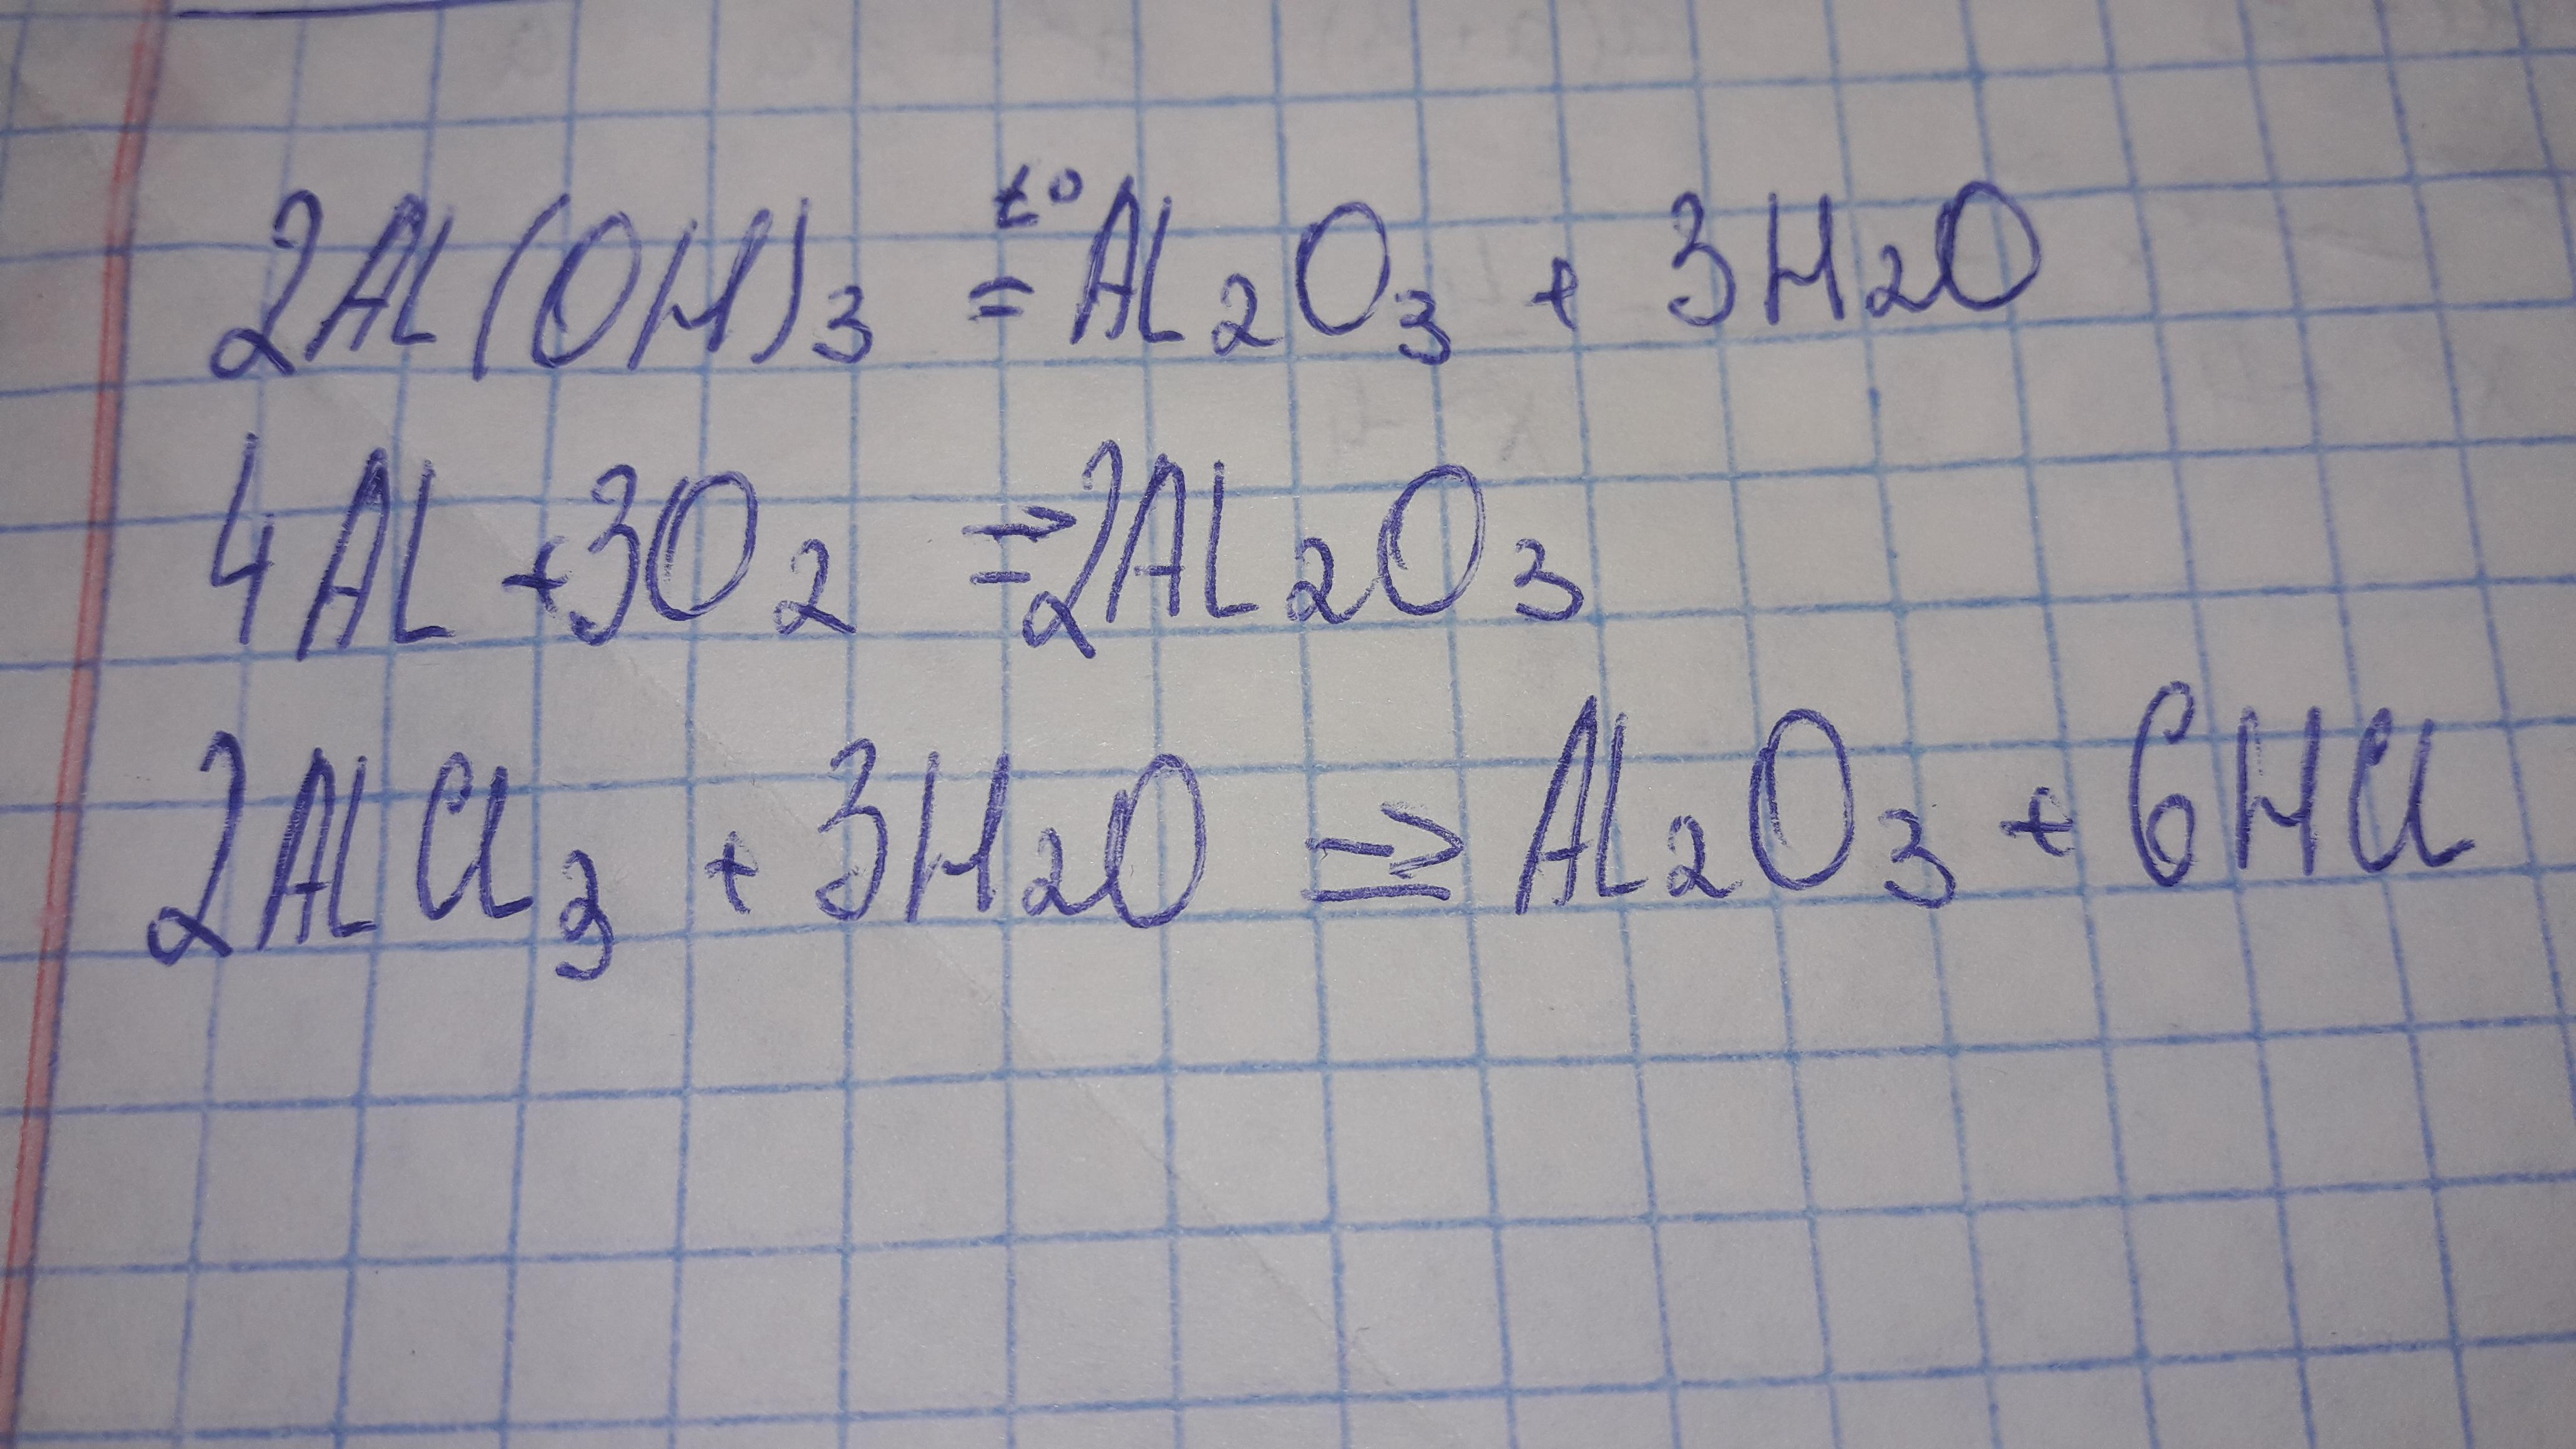 2Al(OH)₃ =^t° Al₂O₃ + 3H₂O
4Al + 3O₂ → 2Al₂O₃
2AlCl₃ + 3H₂O → Al₂O₃ + 6HCl